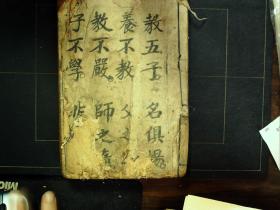 教五子 名俱揚
養不教 父之過
教不嚴 師之惰
子不學 非